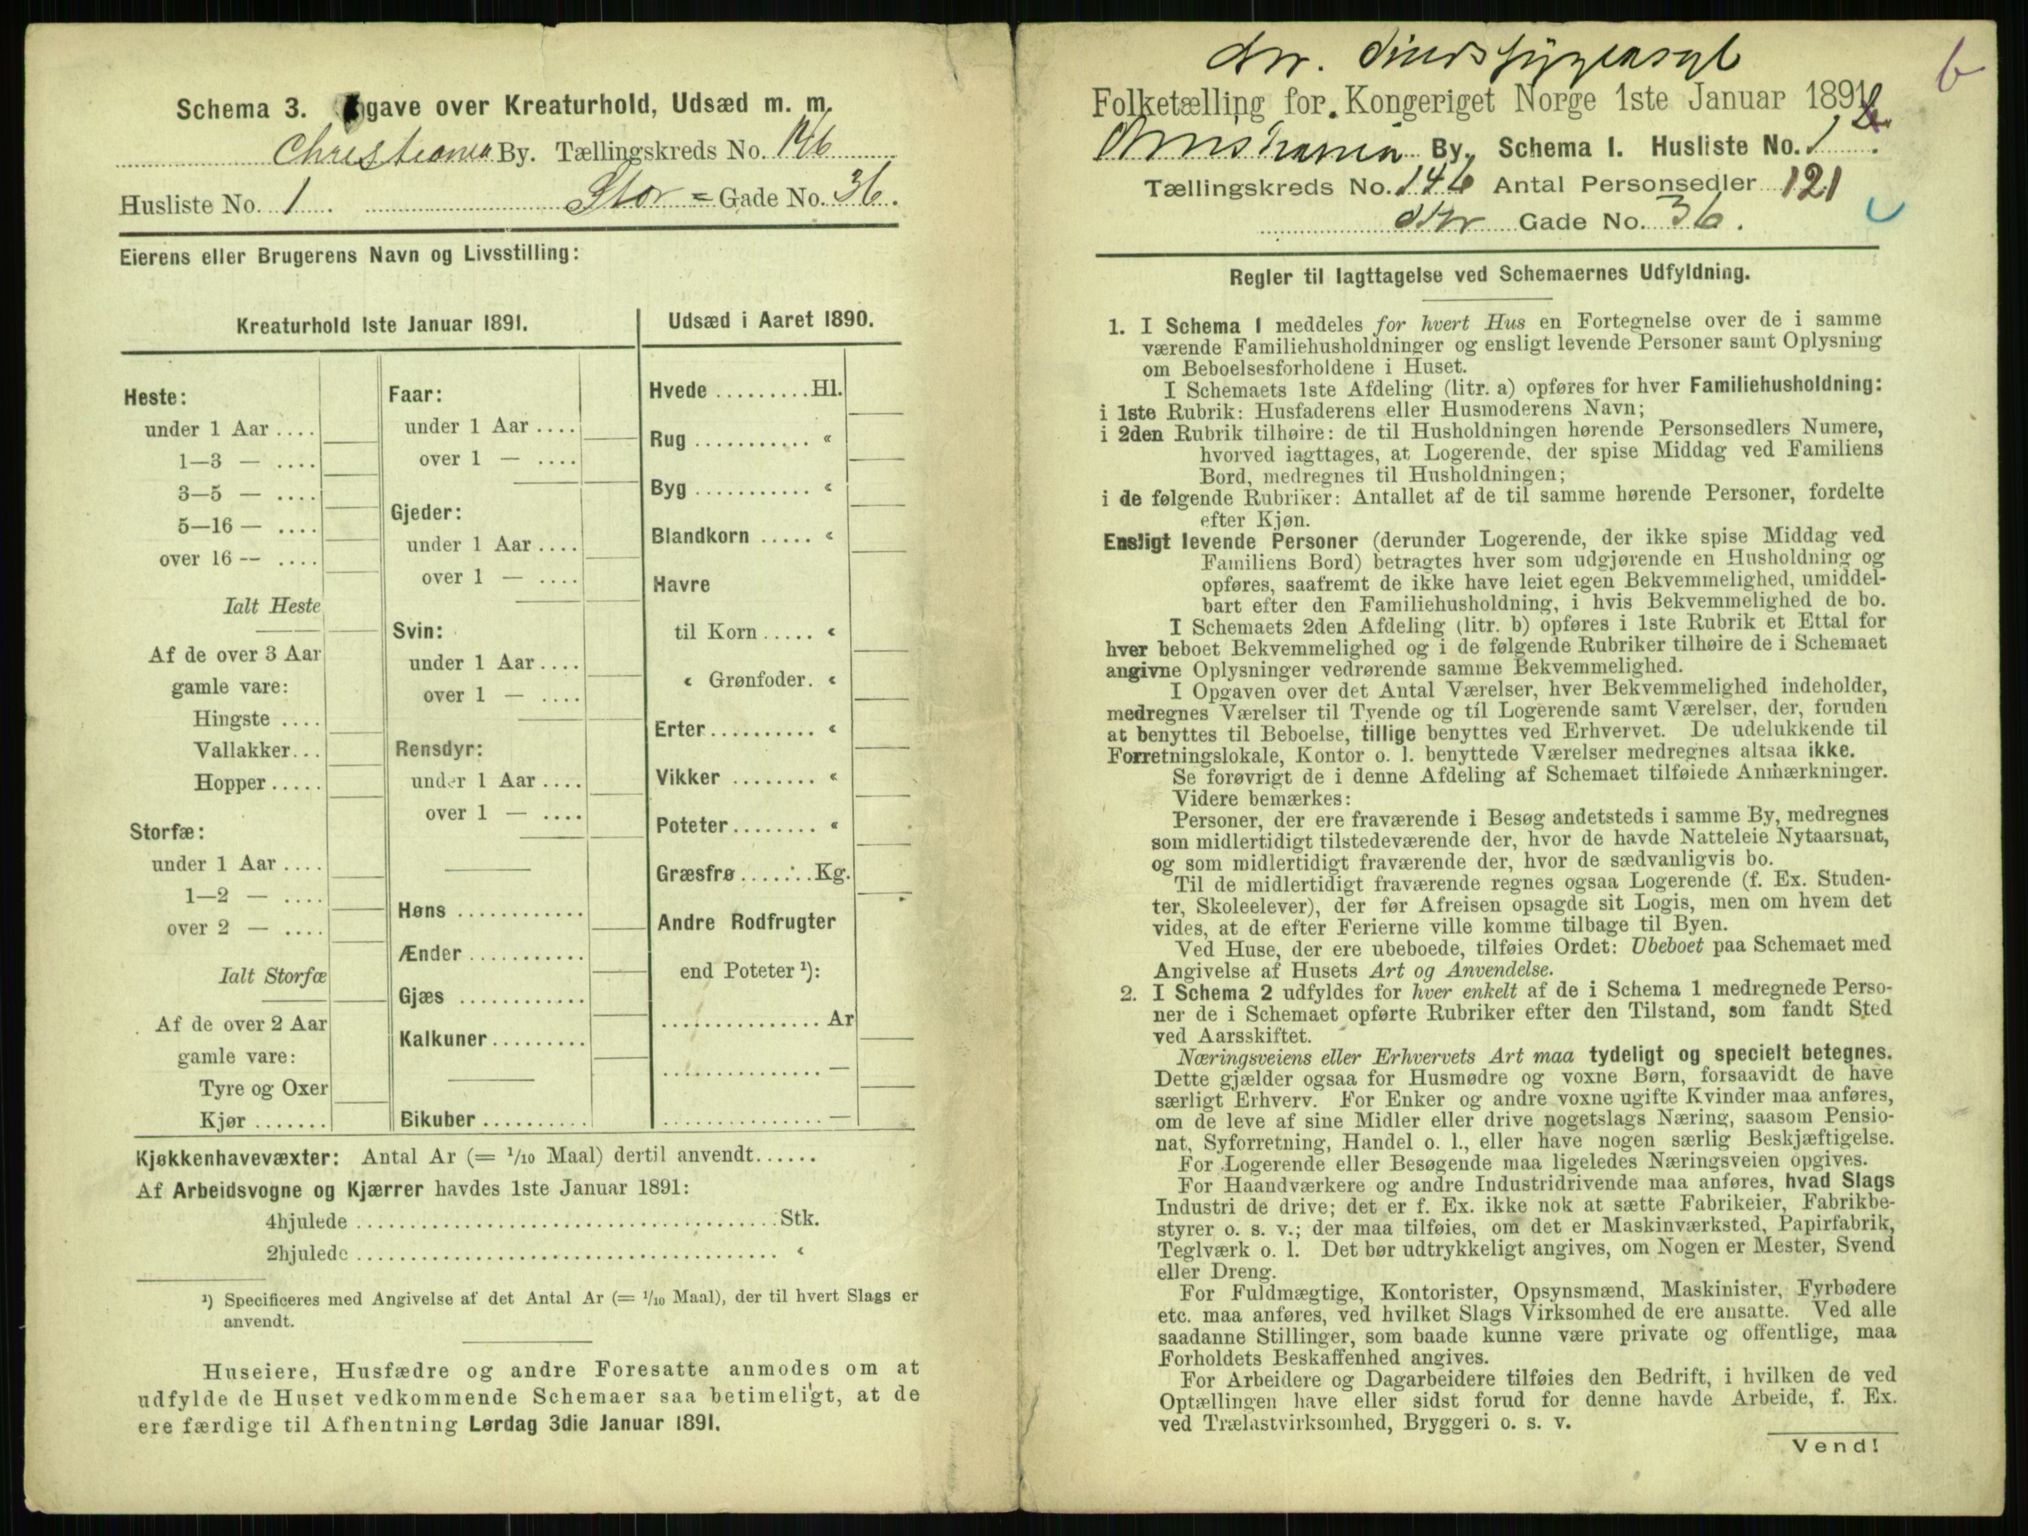 Schema 3. Opgave over Kreaturhold, Udsæd m. m.
Christiania By. Tællingskreds No. 146
Husliste No. 1 Stor = Gade No. 36.
Eierens eller Brugerens Navn og Livsstilling:
Kreaturhold 1ste Januar 1891.
Heste:
under 1 Aar ....
1—3 — ....
3—5 — ....
5—16 — ....
over 16 — ....
Ialt Heste
Af de over 3 Aar
gamle vare:
Hingste ....
Vallakker...
Hopper.....
Storfæ:
under 1 Aar ....
1—2 — ....
over 2 — ....
Ialt Storfæ
Af de over 2 Aar
gamle vare:
Tyre og Oxer
Kjør .......
Faar:
under 1 Aar ....
over 1 — ....
Gjeder:
under 1 Aar ....
over 1 — ....
Svin:
under 1 Aar ....
over 1 — ....
Rensdyr:
under 1 Aar ....
over 1 — ....
Høns ............
Ænder ...........
Gjæs ............
Kalkuner.........
Bikuber ..........
Udsæd i Aaret 1890.
Hvede .........Hl.
Rug ........... «
Byg ........... «
Blandkorn ..... «
Havre
til Korn ..... «
« Grønfoder. «
Erter.......... «
Vikker ........ «
Poteter........ «
Græsfrø ....... Kg.
Andre Rodfrugter
end Poteter ¹):
............... Ar
............... —
............... —
Kjøkkenhavevæxter: Antal Ar (= 1/10 Maal) dertil anvendt......
Af Arbeidsvogne og Kjærrer havdes 1ste Januar 1891:
4hjulede ....................................... Stk.
2hjulede ....................................... «
¹) Specificeres med Angivelse af det Antal Ar (= 1/10 Maal), der til hvert Slags er
anvendt.
Huseiere, Husfædre og andre Foresatte anmodes om at
udfylde de Huset vedkommende Schemaer saa betimeligt, at de
ere færdige til Afhentning Lørdag 3die Januar 1891.
Kr. Sindssygeasyl
b
Folketælling for Kongeriget Norge 1ste Januar 1891
Kristiania By. Schema 1. Husliste No. 1
Tællingskreds No. 146 Antal Personsedler 121
Stor Gade No. 36.
Regler til Iagttagelse ved Schemaernes Udfyldning.
1. I Schema 1 meddeles for hvert Hus en Fortegnelse over de i samme
værende Familiehusholdninger og ensligt levende Personer samt Oplysning
om Beboelsesforholdene i Huset.
I Schemaets 1ste Afdeling (litr. a) opføres for hver Familiehusholdning:
i 1ste Rubrik: Husfaderens eller Husmoderens Navn;
i 2den Rubrik tilhøire: de til Husholdningen hørende Personsedlers Numere,
hvorved iagttages, at Logerende, der spise Middag ved Familiens
Bord, medregnes til Husholdningen;
i de følgende Rubriker: Antallet af de til samme hørende Personer, fordelte
efter Kjøn.
Ensligt levende Personer (derunder Logerende, der ikke spise Middag ved
Familiens Bord) betragtes hver som udgjørende en Husholdning og
opføres, saafremt de ikke have leiet egen Bekvemmelighed, umiddel-
bart efter den Familiehusholdning, i hvis Bekvemmelighed de bo.
I Schemaets 2den Afdeling (litr. b) opføres i 1ste Rubrik et Ettal for
hver beboet Bekvemmelighed og i de følgende Rubriker tilhøire de i Schemaet
angivne Oplysninger vedrørende samme Bekvemmelighed.
I Opgaven over det Antal Værelser, hver Bekvemmelighed indeholder,
medregnes Værelser til Tyende og til Logerende samt Værelser, der, foruden
at benyttes til Beboelse, tillige benyttes ved Erhvervet. De udelukkende til
Forretningslokale, Kontor o. l. benyttede Værelser medregnes altsaa ikke.
Se forøvrigt de i denne Afdeling af Schemaet tilføiede Anmærkninger.
Videre bemærkes:
Personer, der ere fraværende i Besøg andetsteds i samme By, medregnes
som midlertidigt tilstedeværende der, hvor de havde Natteleie Nytaarsnat,
og som midlertidigt fraværende der, hvor de sædvanligvis bo.
Til de midlertidigt fraværende regnes ogsaa Logerende (f. Ex. Studen-
ter, Skoleelever), der før Afreisen opsagde sit Logis, men om hvem det
vides, at de efter Ferierne ville komme tilbage til Byen.
Ved Huse, der ere ubeboede, tilføies Ordet: Ubeboet paa Schemaet med
Angivelse af Husets Art og Anvendelse.
2. I Schema 2 udfyldes for hver enkelt af de i Schema 1 medregnede Perso-
ner de i Schemaet opførte Rubriker efter den Tilstand, som fandt Sted
ved Aarsskiftet.
Næringsveiens eller Erhvervets Art maa tydeligt og specielt betegnes.
Dette gjælder ogsaa for Husmødre og voxne Børn, forsaavidt de have
særligt Erhverv. For Enker og andre voxne ugifte Kvinder maa anføres,
om de leve af sine Midler eller drive nogetslags Næring, saasom Pensio-
nat, Syforretning, Handel o. l., eller have nogen særlig Beskjæftigelse.
For Logerende eller Besøgende maa ligeledes Næringsveien opgives.
For Haandværkere og andre Industridrivende maa anføres, hvad Slags
Industri de drive; det er f. Ex. ikke nok at sætte Fabrikeier, Fabrikbe-
styrer o. s. v.; der maa tilføies, om det er Maskinværksted, Papirfabrik,
Teglværk o. l. Det bør udtrykkeligt angives, om Nogen er Mester, Svend
eller Dreng.
For Fuldmægtige, Kontorister, Opsynsmænd, Maskinister, Fyrbødere
etc. maa anføres, ved hvilket Slags Virksomhed de ere ansatte. Ved alle
saadanne Stillinger, som baade kunne være private og offentlige, maa
Forholdets Beskaffenhed angives.
For Arbeidere og Dagarbeidere tilføies den Bedrift, i hvilken de ved
Optællingen have eller sidst forud for denne havde Arbeide, f. Ex.
ved Trælastvirksomhed, Bryggeri o. s. v.
Vend!